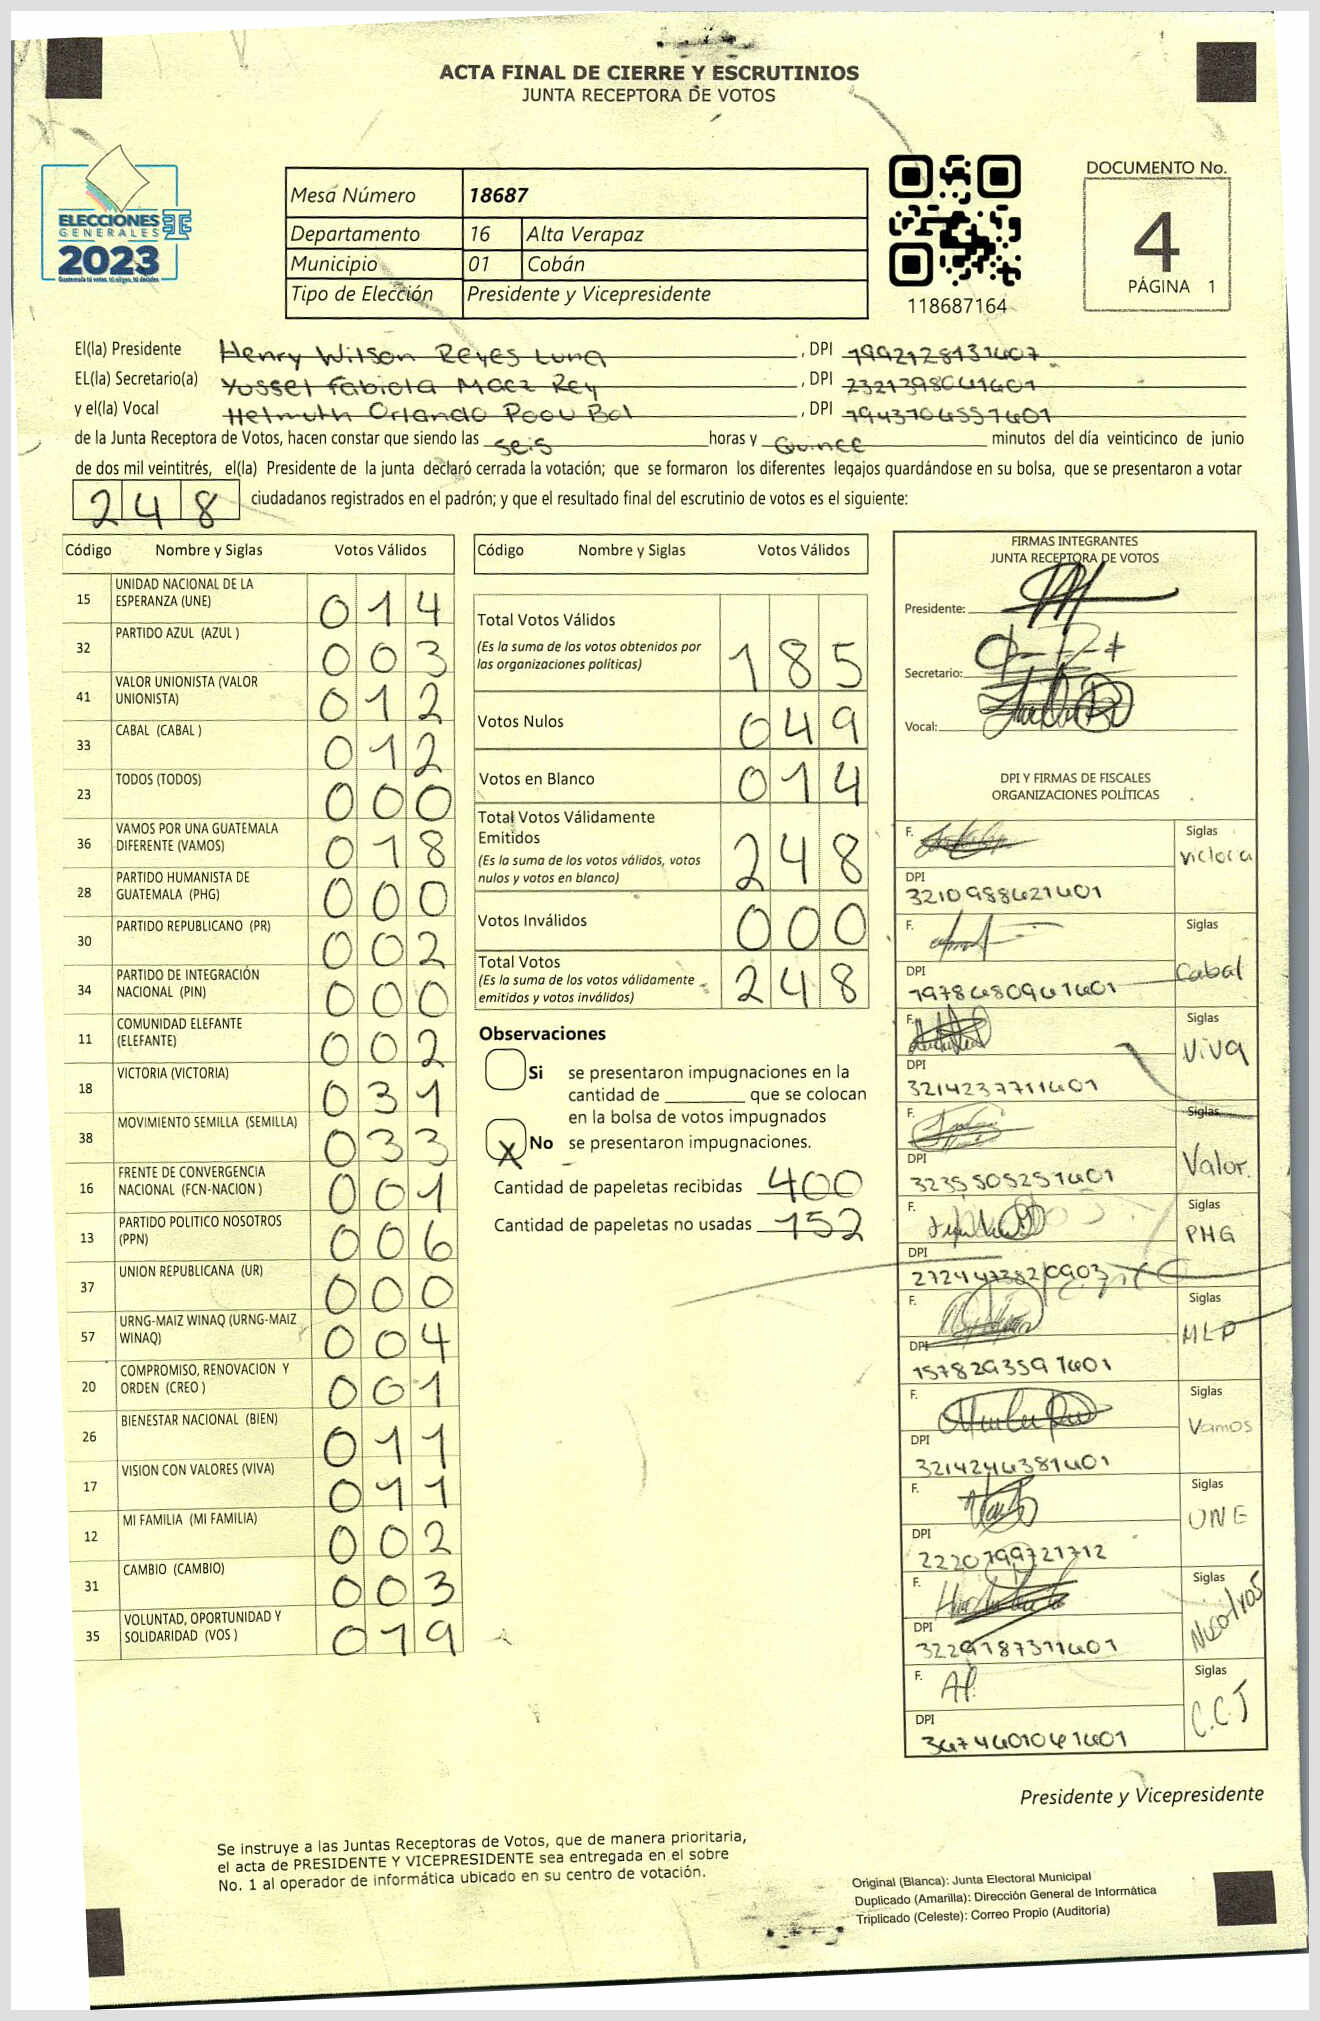 ACTA FINAL DE CIERRE Y ESCRUTINIOS
JUNTA RECEPTORA DE VOTOS
ELECCIONES
GENERALES
2023
Mesa Número 18687
Departamento 16 Alta Verapaz
Municipio 01 Cobán
Tipo de Elección Presidente y Vicepresidente
118687164
DOCUMENTO No.
4
PÁGINA 1
El(la) Presidente Henry Wilson Reyes Luna, DPI 1992128131607
EL(la) Secretario(a) Yussel Fabiola Maez Rey, DPI 2321398061601
y el(la) Vocal Helmuth Orlando Poou Bol, DPI 1943706551601
de la Junta Receptora de Votos, hacen constar que siendo las seis horas y Quince minutos del día veinticinco de junio
de dos mil veintitrés, el(la) Presidente de la junta declaró cerrada la votación; que se formaron los diferentes legajos guardándose en su bolsa, que se presentaron a votar
248 ciudadanos registrados en el padrón; y que el resultado final del escrutinio de votos es el siguiente:
Código Nombre y Siglas Votos Válidos
15 UNIDAD NACIONAL DE LA ESPERANZA (UNE) 014
32 PARTIDO AZUL (AZUL ) 003
41 VALOR UNIONISTA (VALOR UNIONISTA) 012
33 CABAL (CABAL ) 012
23 TODOS (TODOS) 000
36 VAMOS POR UNA GUATEMALA DIFERENTE (VAMOS) 018
28 PARTIDO HUMANISTA DE GUATEMALA (PHG) 000
30 PARTIDO REPUBLICANO (PR) 002
34 PARTIDO DE INTEGRACIÓN NACIONAL (PIN) 000
11 COMUNIDAD ELEFANTE (ELEFANTE) 002
18 VICTORIA (VICTORIA) 031
38 MOVIMIENTO SEMILLA (SEMILLA) 033
16 FRENTE DE CONVERGENCIA NACIONAL (FCN-NACION ) 001
13 PARTIDO POLITICO NOSOTROS (PPN) 006
37 UNION REPUBLICANA (UR) 000
57 URNG-MAIZ WINAQ (URNG-MAIZ WINAQ) 004
20 COMPROMISO, RENOVACION Y ORDEN (CREO ) 001
26 BIENESTAR NACIONAL (BIEN) 011
17 VISION CON VALORES (VIVA) 011
12 MI FAMILIA (MI FAMILIA) 002
31 CAMBIO (CAMBIO) 003
35 VOLUNTAD, OPORTUNIDAD Y SOLIDARIDAD (VOS ) 019
Código Nombre y Siglas Votos Válidos
Total Votos Válidos 185
(Es la suma de los votos obtenidos por
las organizaciones políticas)
Votos Nulos 049
Votos en Blanco 014
Total Votos Válidamente
Emitidos 248
(Es la suma de los votos válidos, votos
nulos y votos en blanco)
Votos Inválidos 000
Total Votos 248
(Es la suma de los votos válidamente
emitidos y votos inválidos)
Observaciones
Si se presentaron impugnaciones en la
cantidad de ________ que se colocan
en la bolsa de votos impugnados
X No se presentaron impugnaciones.
Cantidad de papeletas recibidas 400
Cantidad de papeletas no usadas 152
FIRMAS INTEGRANTES
JUNTA RECEPTORA DE VOTOS
Presidente:
Secretario:
Vocal:
DPI Y FIRMAS DE FISCALES
ORGANIZACIONES POLÍTICAS
F. Siglas Victoria
DPI
3210988621601
F. Siglas Cabal
DPI
1978680961601
F. Siglas Viva
DPI
3214237711601
F. Siglas Valor.
DPI
3235505251601
F. Siglas PHG
DPI
2724473820903
F. Siglas MLP
DPI
1578293591601
F. Siglas Vamos
DPI
3214246381601
F. Siglas UNE
DPI
2220799721712
F. Siglas Nosotros
DPI
3229187311601
F. Siglas C.C.J
DPI
3674601061601
Presidente y Vicepresidente
Se instruye a las Juntas Receptoras de Votos, que de manera prioritaria,
el acta de PRESIDENTE Y VICEPRESIDENTE sea entregada en el sobre
No. 1 al operador de informática ubicado en su centro de votación.
Original (Blanca): Junta Electoral Municipal
Duplicado (Amarilla): Dirección General de Informática
Triplicado (Celeste): Correo Propio (Auditoría)